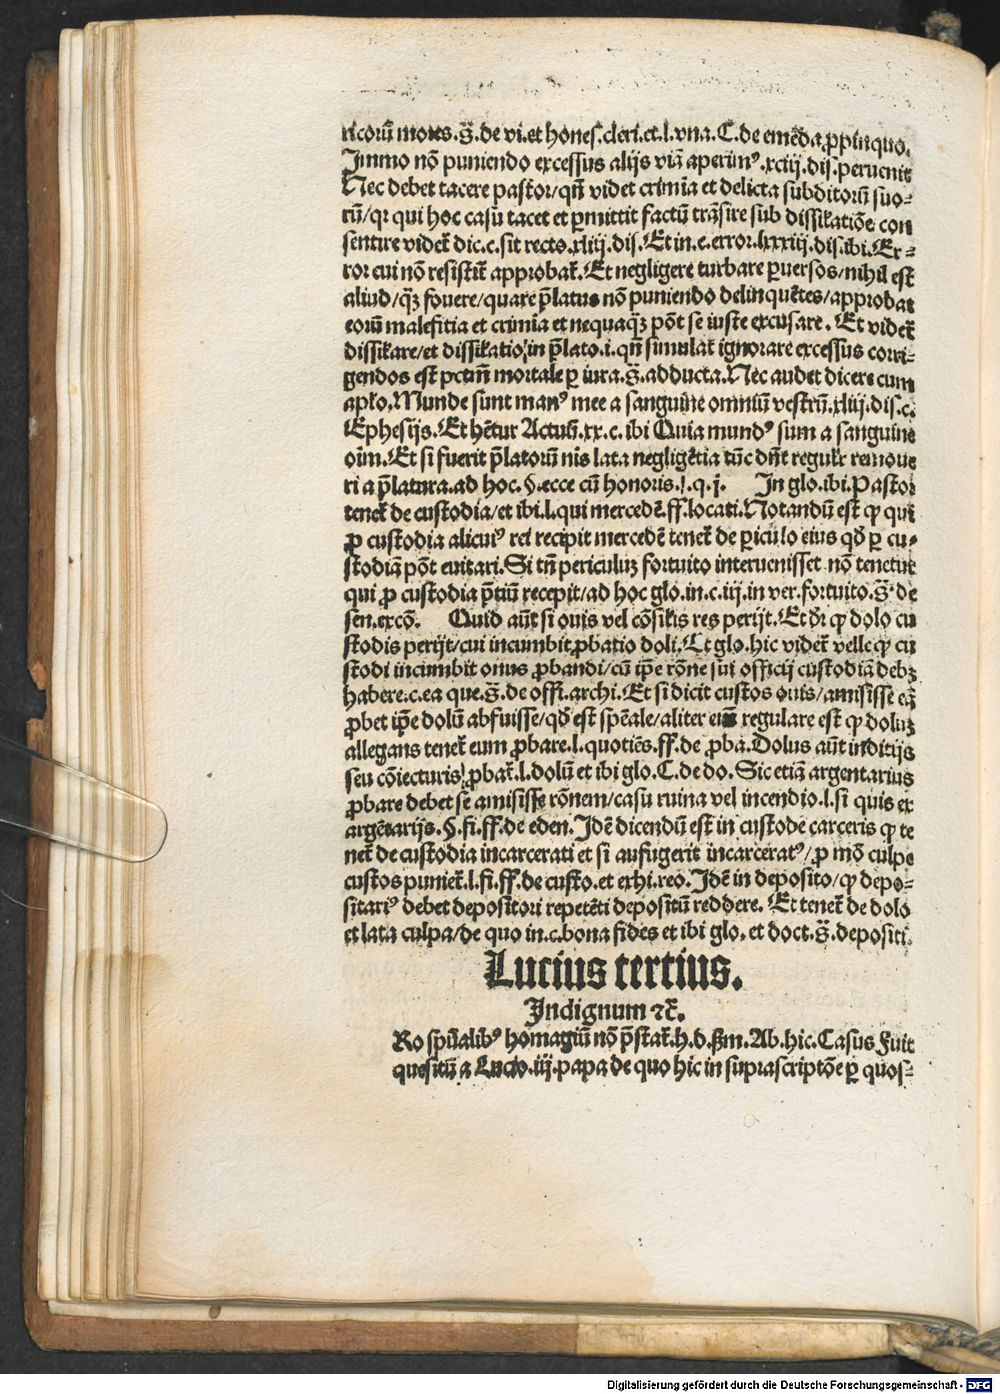 ricorū mores.s̄.de vi.et hones.cleri.et.l.vna.C.de emēda.ꝓpinquo.
Immo nō puniendo excessus alijs viā aperimꝰ.xciij.dis.peruenit
Nec debet tacere pastor/qn̄ videt crimīa et delicta subditorū suo⸗
rū/qꝛ qui hoc casu tacet et ꝑmittit factū trāsire sub dissil̄atiōe con
sentire videt̄ dic.c.sit recto.xliij.dis.Et in.c.error.lxxxiij.dis.ibi.Er⸗
ror cui nō resistit̄ approbat̄.Et negligere turbare ꝑuersos/nihil est
aliud/qȝ̄ fouere/quare p̄latus nō puniendo delinquētes/approbat
eorū malefitia et crimīa et nequaqȝ̄ pōt se iuste excusare. Et videt̄
dissil̄are/et dissil̄atio/in p̄lato.i.qn̄ simulat̄ ignorare excessus corri⸗
gendos est pctm̄ mortale ꝑ iura.s̄.adducta.Nec audet dicere cum
apl̄o.Munde sunt manꝰ mee a sanguine omniū vestrū.xliij.dis.c.
Ephesijs.Et hētur Actuū.xx.c.ibi Quia mundꝰ sum a sanguine
oīm.Et si fuerit p̄latorū nis lata negligētia tūc dn̄t regulr̄ remoue
ri a p̄latura.ad hoc.§.ecce cū honoris.j.q.j. In glo.ibi.Pastor
tenet̄ de custodia/et ibi.l.qui mercedē.ff.locati.Notandū est ꝙ qui
ꝓ custodia alicuiꝰ rei recipit mercedē tenet̄ de ꝑiculo eius qd̄ ꝑ cu⸗
stodiā pōt euitari.Si tn̄ periculuȝ fortuito interuenisset nō tenetur
qui ꝓ custodia p̄tiū recepit/ad hoc glo.in.c.iij.in ver.fortuito.s̄.de
sen.excō. Quid aūt si ouis vel cōsil̄is res perijt.Et dr̄ ꝙ dolo cu
stodis perijt/cui incumbit ꝓbatio doli.Et glo.hic videt̄ velle ꝙ cu
stodi incumbit onus ꝓbandi/cū ip̄e rōne sui officij custodiā debȝ
habere.c.ea que.s̄.de offi.archi.Et si dicit custos ouis/amisisse eā
ꝓbet ip̄e dolū abfuisse/qd̄ est spēale/aliter eni regulare est ꝙ doluȝ
allegans tenet̄ eum ꝓbare.l.quotiēs.ff.de ꝓba.Dolus aūt inditijs
seu cōiecturis ꝓbat̄.l.dolū et ibi glo.C.de do.Sic etiā argentarius
ꝓbare debet se amisisse rōnem/casu ruina vel incendio.l.si quis ex
argētarijs.§.fi.ff.de eden.Idē dicendū est in custode carceris ꝙ te
net̄ de custodia incarcerati et si aufugerit incarceratꝰ/ꝓ mō culpe
custos puniet̄.l.fi.ff.de custo.et exhi.reo.Idē in deposito/ꝙ depo⸗
sitariꝰ debet depositori repetēti depositū reddere. Et tenet̄ de dolo
et lata culpa/de quo in.c.bona fides et ibi glo.et doct.s̄.depositi.
Lucius tertius.
Indignum ⁊c̄.
Ro spūalibꝰ homagiū nō p̄stat̄.h.d.ẜm.Ab.hic.Casus Fuit
quesitū a Lucio.iij.papa de quo hic in suprascriptōe ꝑ quos⸗
Digitalisierung gefördert durch die Deutsche Forschungsgemeinschaft - DFG